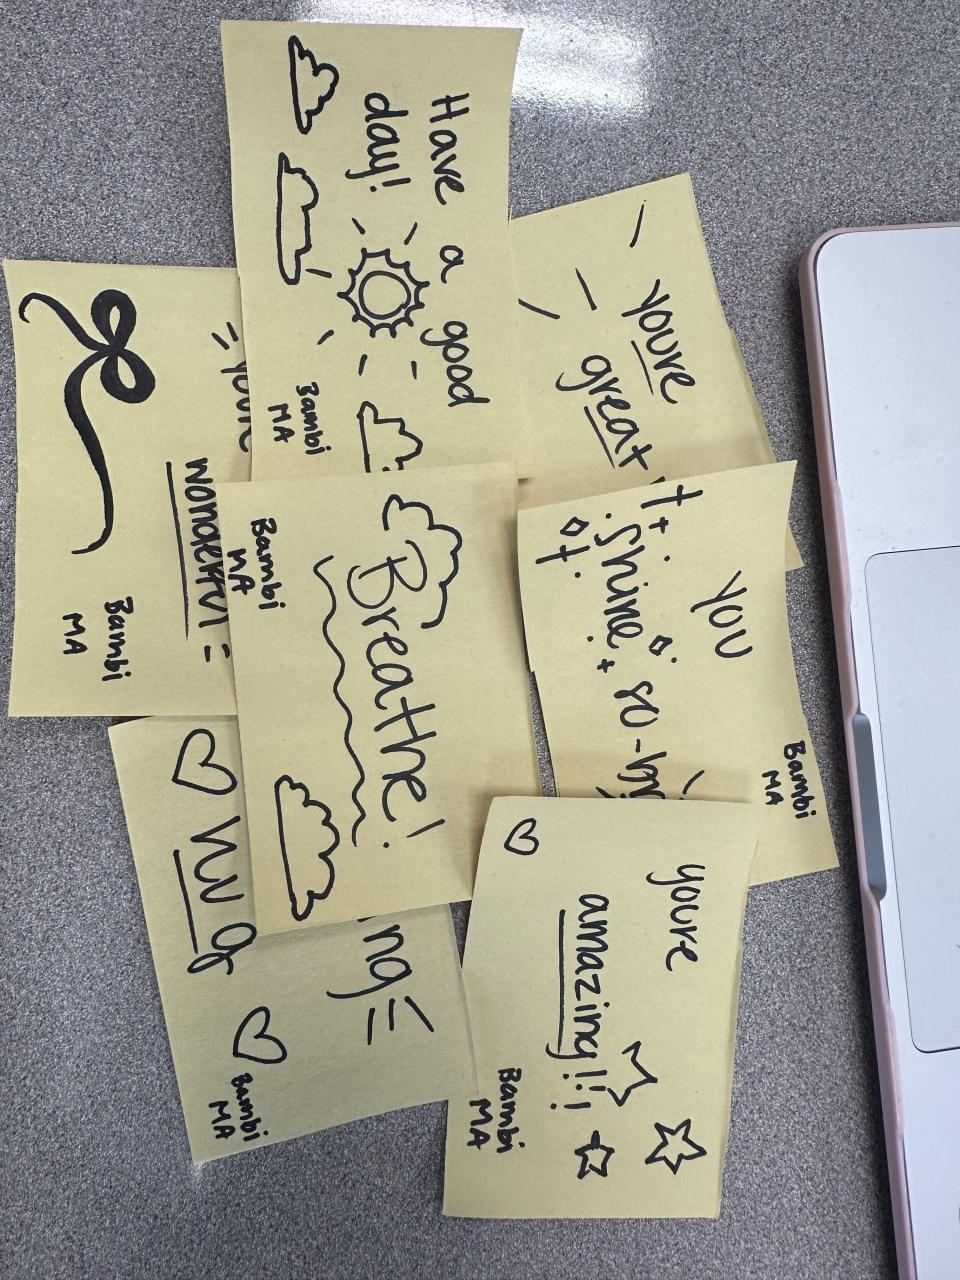 Have a good
day!
Bambi
MA
youre
great
youre
wonderful
Bambi
MA
Breathe!
Bambi
MA
YOU
shine
so
Bambi
MA
Bambi
MA
youre
amazing!!!
Bambi
MA